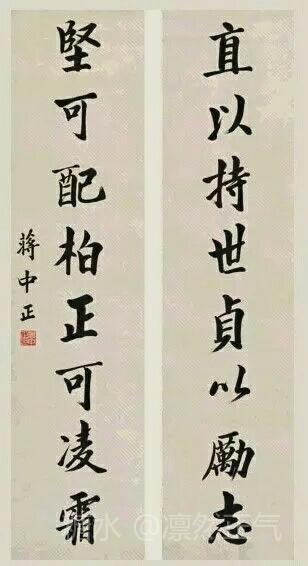 直以持世貞以勵志
堅可配柏正可凌霜
蔣中正
水 @凛然
气